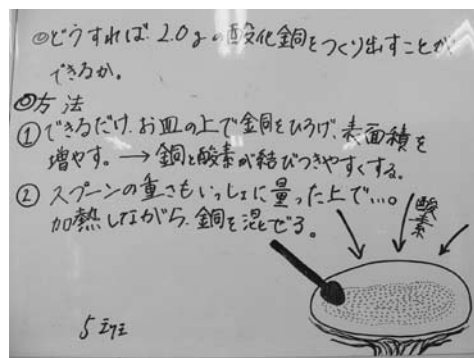 ◎どうすれば 2.0gの酸化銅をつくり出すことが
できるか。
◎方法
① できるだけ、お皿の上で銅をひろげ、表面積を
増やす。→ 銅と酸素が結びつきやすくする。
② スプーンの重さもいっしょに量った上で…。
加熱しながら、銅を混ぜる。
酸素
5